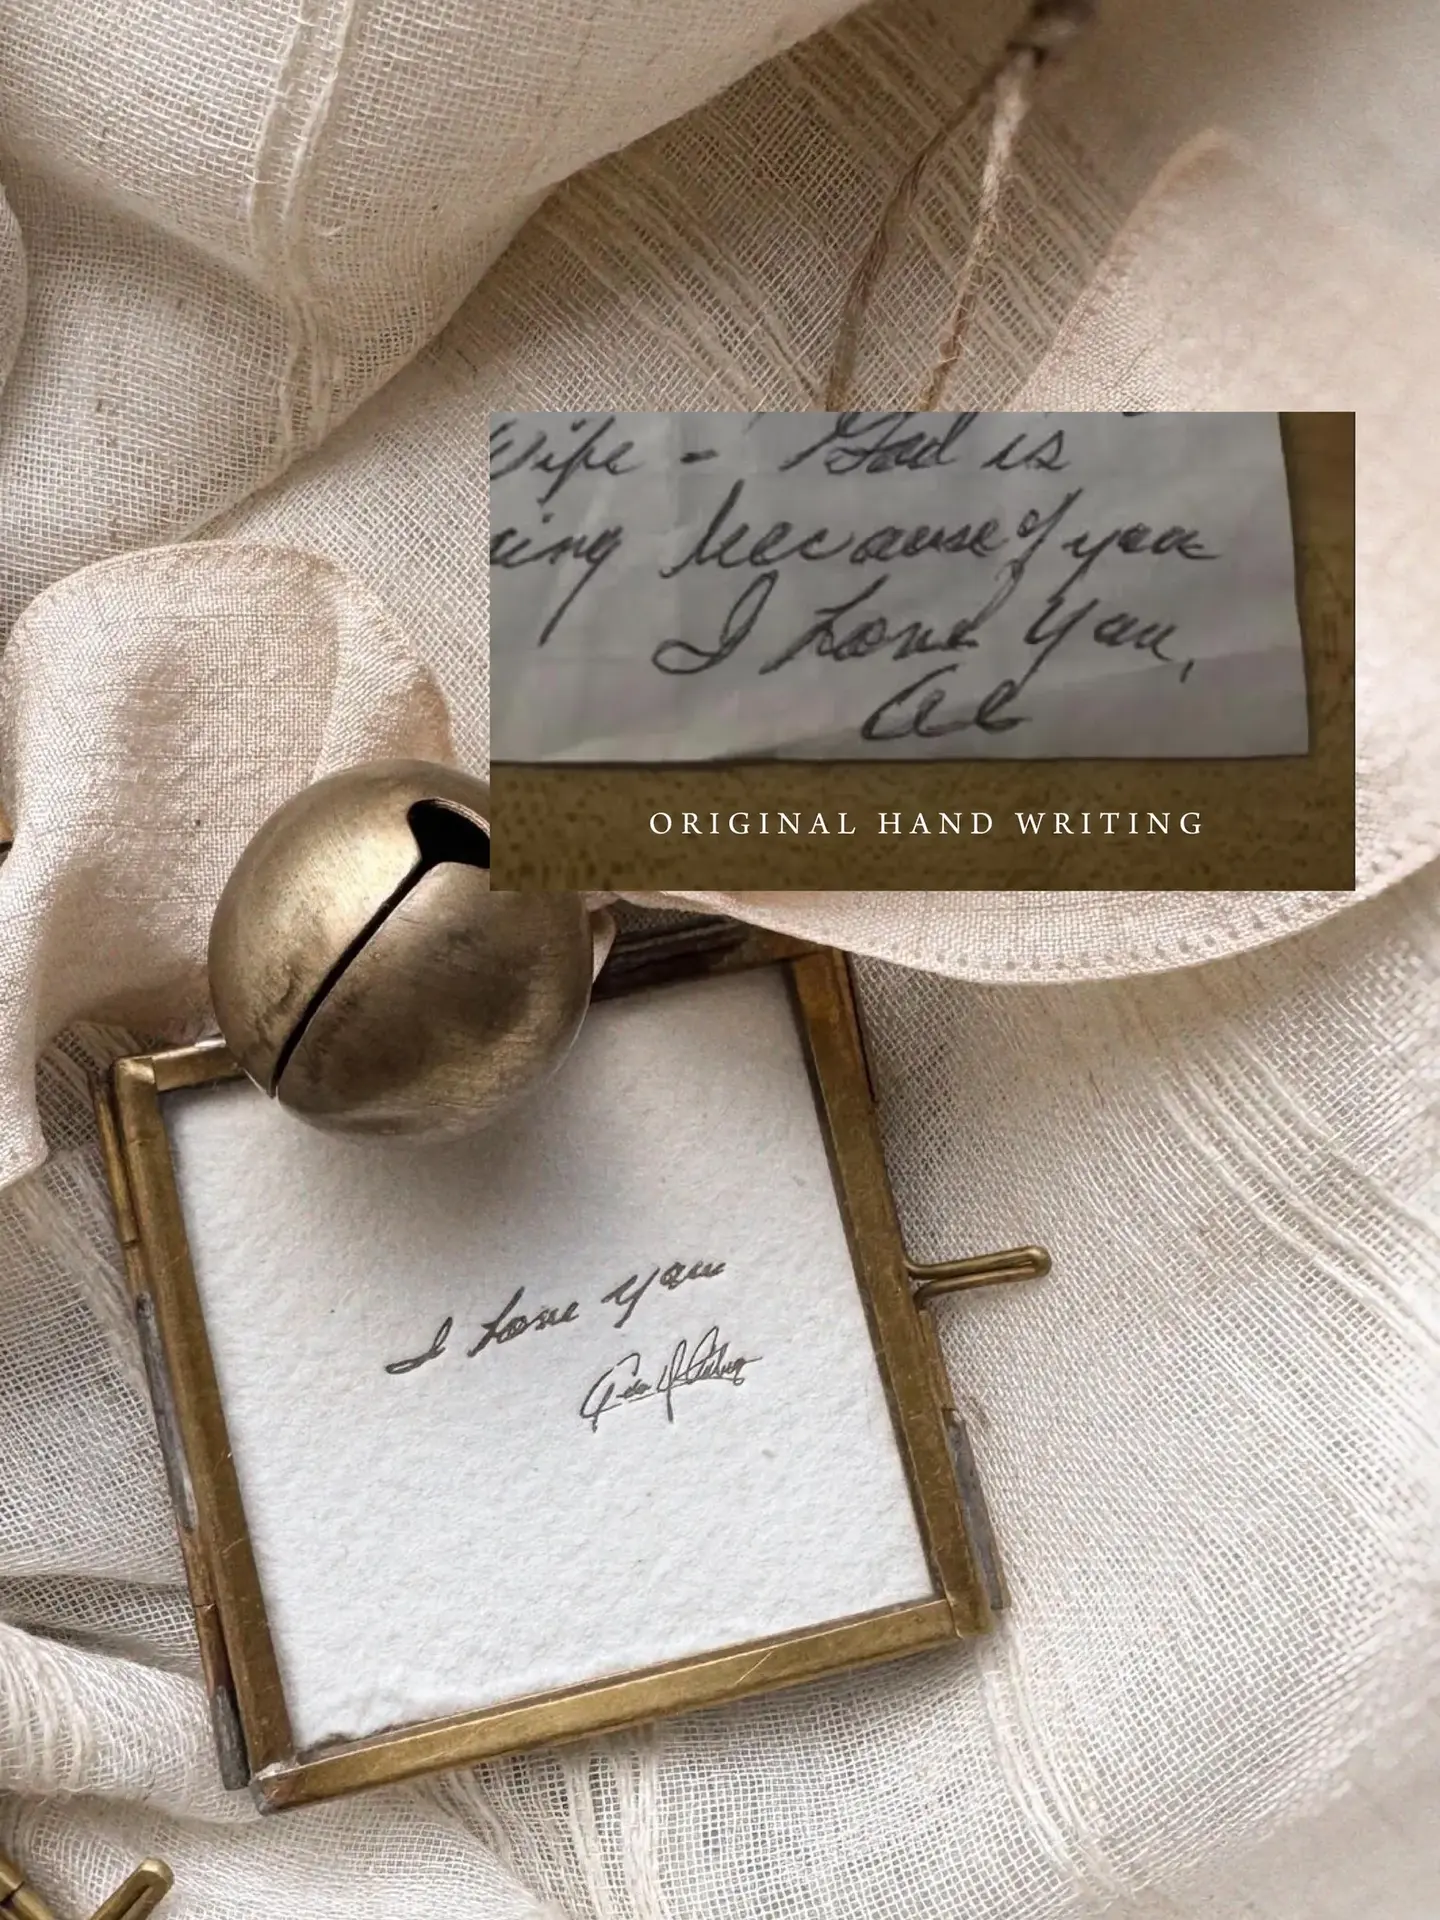 Wife - God is
because of you
I Love You,
Al
ORIGINAL HAND WRITING
I Love You